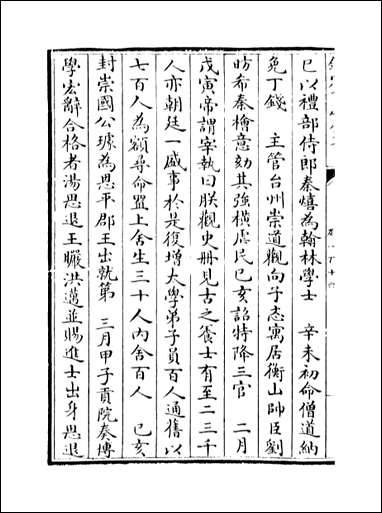 巳以禮部侍郎秦熺為翰林學士　辛未初命僧道納
免丁錢　主管台州崇道觀向子忞寓居衡山帥臣劉
昉希秦檜意劾其強橫虐民己亥詔特降三官　二月
戊寅帝謂宰執曰朕觀史冊見古之養士有至二三千
人亦朝廷一盛事於是復增大學弟子員百人通舊以
七百人為額尋命置上舍生三十人內舍百人　己亥
封崇國公璩為恩平郡王出就第　三月甲子貢院奏博
學宏辭合格者湯思退王曮洪邁並賜進士出身思退